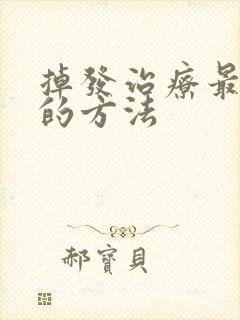 掉發治療最
的方法
郝寶貝